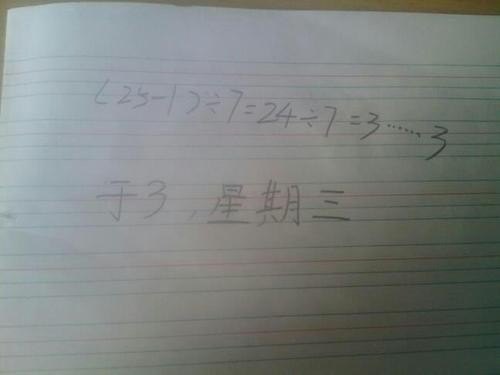 (25-1)÷7=24÷7=3……3
于3,星期三